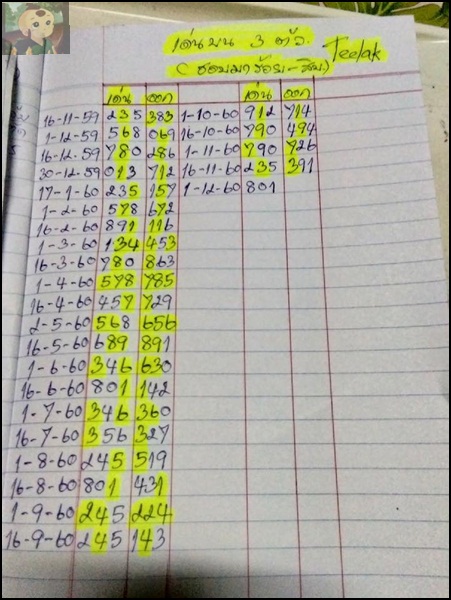 เด่นบน 3 ตัว Teelak
(ชอบมาร้อย-สิบ)
เด่น ออก
16-11-59 235 383
1-12-59 568 069
16-12-59 780 286
30-12-59 013 712
17-1-60 235 157
1-2-60 578 672
16-2-60 891 116
1-3-60 134 453
16-3-60 780 863
1-4-60 578 785
16-4-60 457 729
2-5-60 568 656
16-5-60 689 891
1-6-60 346 630
16-6-60 801 142
1-7-60 346 360
16-7-60 356 327
1-8-60 245 519
16-8-60 801 431
1-9-60 245 224
16-9-60 245 143
เด่น ออก
1-10-60 912 714
16-10-60 790 494
1-11-60 790 726
16-11-60 235 391
1-12-60 801